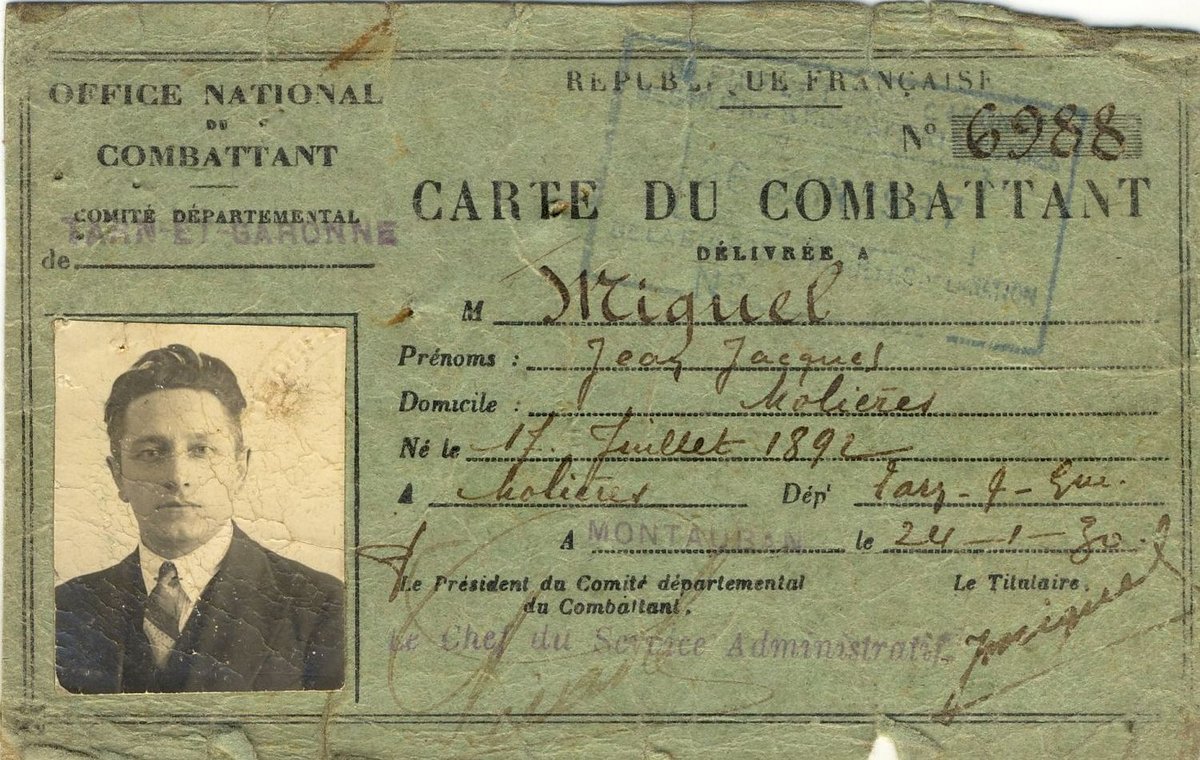 OFFICE NATIONAL
DU
COMBATTANT
COMITÉ DÉPARTEMENTAL
de TARN-ET-GARONNE
RÉPUBLIQUE FRANÇAISE
N° 6988
CARTE DU COMBATTANT
DÉLIVRÉE A
M Miquel
Prénoms : Jean Jacques
Domicile : Molières
Né le 17 Juillet 1892
A Molières Dépt Tarn-&-Gne.
A MONTAUBAN le 24-1-30.
Le Président du Comité départemental
du Combattant.
Le Titulaire.
Le Chef du Service Administratif
Jmiquel